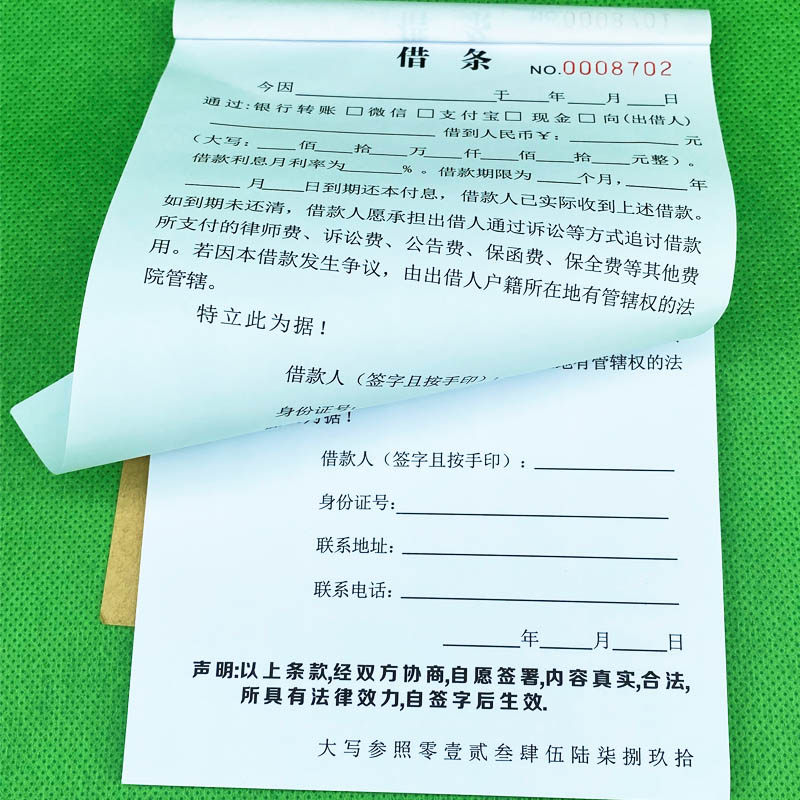 借条 NO.0008702
今因____________于____年____月____日
通过:银行转账□微信□支付宝□现金□向(出借人)
____________借到人民币¥:____________元
(大写:____佰____拾____万____仟____佰____拾____元整)。
借款利息月利率为____%。借款期限为____个月,____年
____月____日到期还本付息,借款人已实际收到上述借款。
如到期未还清,借款人愿承担出借人通过诉讼等方式追讨借款
所支付的律师费、诉讼费、公告费、保函费、保全费等其他费
用。若因本借款发生争议,由出借人户籍所在地有管辖权的法
院管辖。
特立此为据!
借款人(签字且按手印):
身份证号:
地有管辖权的法
为据!
借款人(签字且按手印):____________
身份证号:____________
联系地址:____________
联系电话:____________
____年____月____日
声明:以上条款,经双方协商,自愿签署,内容真实,合法,
所具有法律效力,自签字后生效.
大写参照零壹贰叁肆伍陆柒捌玖拾